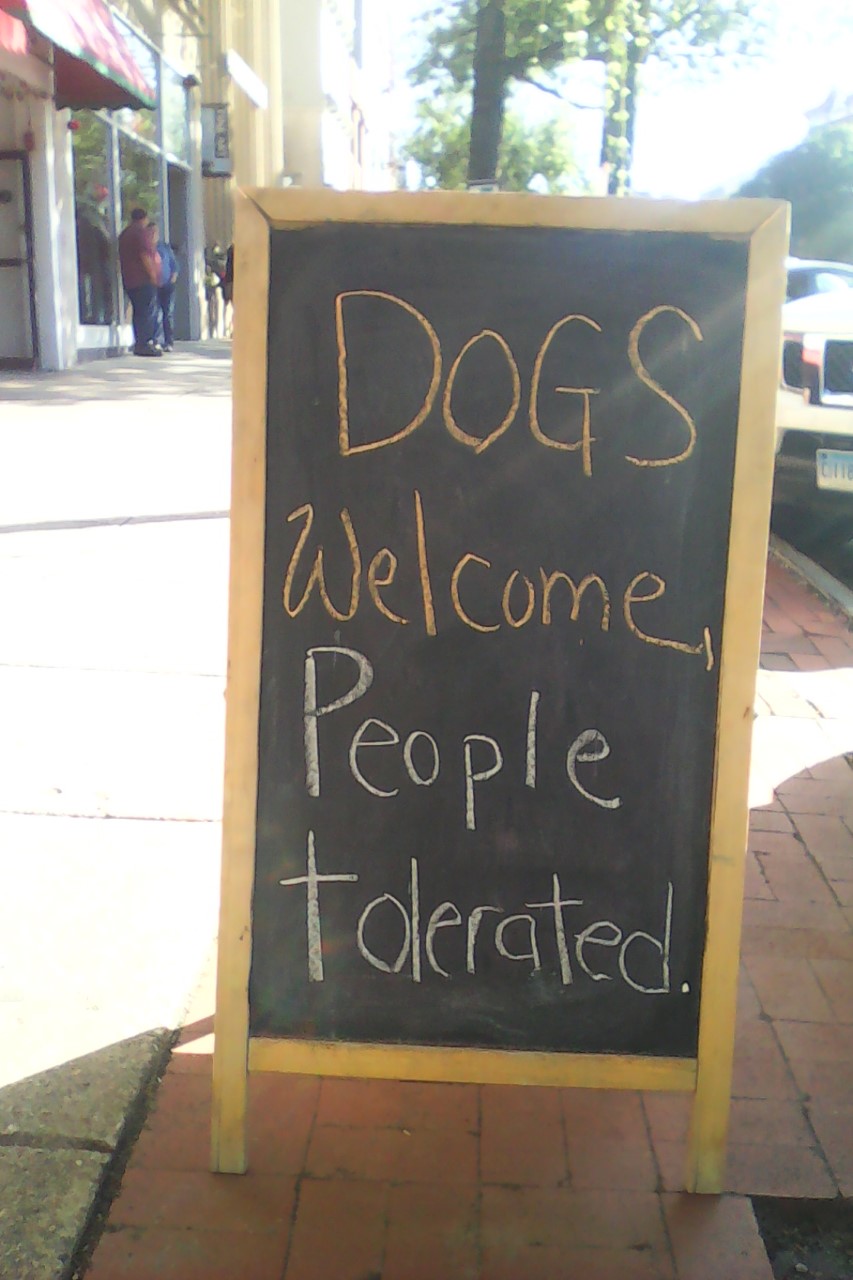 DOGS
Welcome,
People
tolerated.